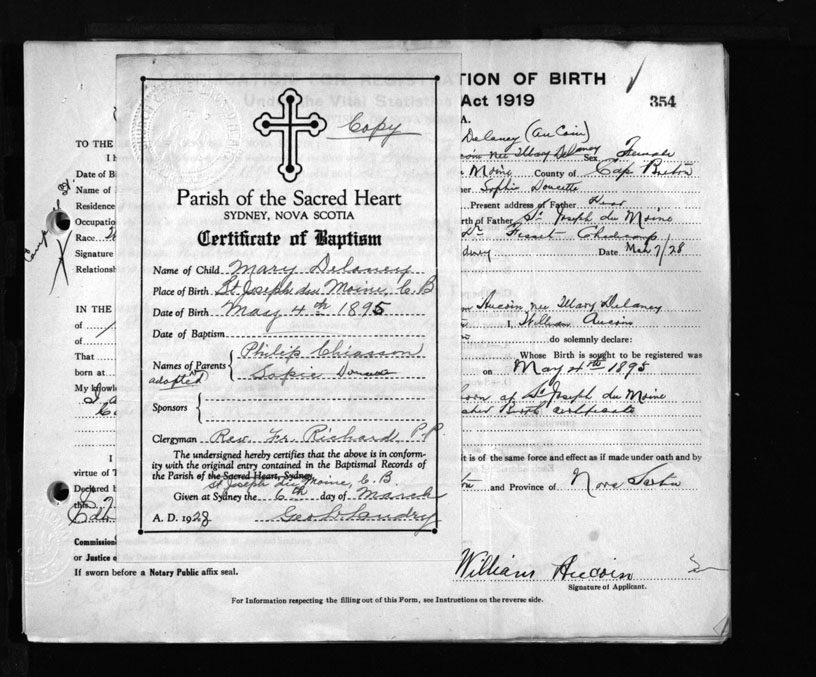 TION OF BIRTH
Act 1919
354
A.
Delaney (Au Coin)
née Mary Delaney Sex Female
Moine County of Cape Breton
Sophie Doucette
Present address of Father Dead
rth of Father St Joseph du Moine
Dr Fiset Cheticamp
dney Date Mar 7/28
TO THE
I h
Date of Bi
Name of
Residence
Occupatio
Race
Signature
Relationsh
IN THE
of
of
That
born at
My knowle
I
virtue of T
Declared b
this
Commission
or Justice o
If sworn before a Notary Public affix seal.
Copy
Parish of the Sacred Heart
SYDNEY, NOVA SCOTIA
Certificate of Baptism
Name of Child Mary Delaney
Place of Birth St Joseph du Moine, C.B
Date of Birth May 4th 1895
Date of Baptism
Names of Parents Philip Chiasson
adopted Sopie Doucette
Sponsors
Clergyman Rev. Fr. Richard P.P.
The undersigned hereby certifies that the above is in conform-
ity with the original entry contained in the Baptismal Records of
the Parish of the Sacred Heart, Sydney.
St Joseph du Moine, C.B.
Given at Sydney the 6th day of March
A. D. 1928 Geo Landry
Aucoin née Mary Delaney
I, William Aucoin
do solemnly declare:
Whose Birth is sought to be registered was
on May 4th 1895
born at St Joseph du Moine
Birth certificate
it is of the same force and effect as if made under oath and by
and Province of Nova Scotia
William Aucoin
Signature of Applicant.
For Information respecting the filling out of this Form, see Instructions on the reverse side.